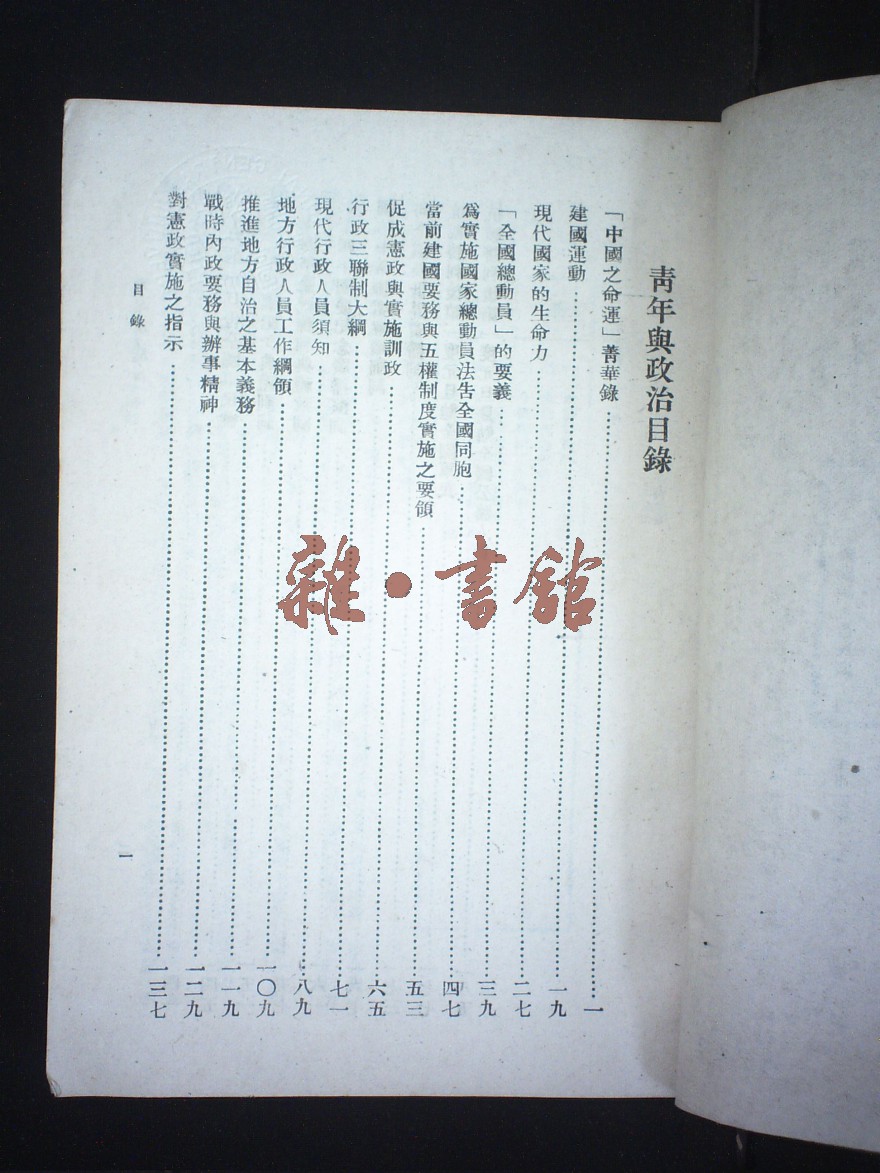 青年與政治目錄
「中國之命運」菁華錄……一
建國運動……一九
現代國家的生命力……二七
「全國總動員」的要義……三九
為實施國家總動員法告全國同胞……四七
當前建國要務與五權制度實施之要領……五三
促成憲政與實施訓政……六五
行政三聯制大綱……七一
現代行政人員須知……八九
地方行政人員工作綱領……一〇九
推進地方自治之基本義務……一一九
戰時內政要務與辦事精神……一二九
對憲政實施之指示……一三七
目錄
一
雜·書館